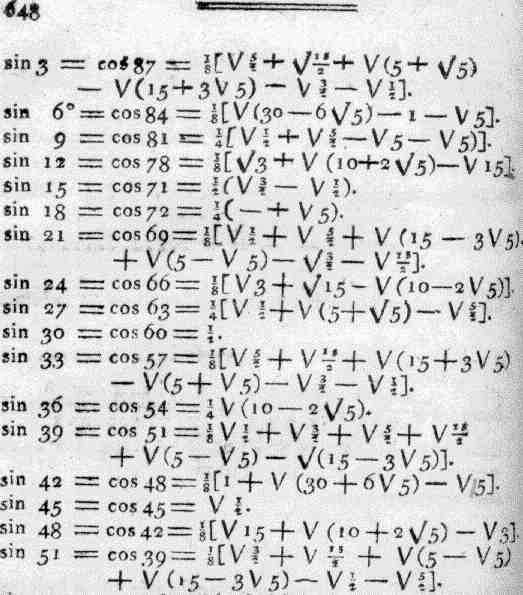 648
sin 3 = cos 87 = ⅛[V 5/2 + √ 15/2 + V(5 + √5)
— V(15 + 3 V 5) — V 3/2 — V 1/2].
sin 6° = cos 84 = ⅛[V(30 — 6 √5) — 1 — V 5].
sin 9 = cos 81 = ¼[V 1/2 + V 5/2 — V 5 — V 5)].
sin 12 = cos 78 = ⅛[√3 + V (10+2 √5) — V 15].
sin 15 = cos 71 = ½(V 3/2 — V 1/2).
sin 18 = cos 72 = ¼(— + V 5).
sin 21 = cos 69 = ⅛[V 1/2 + V 5/2 + V (15 — 3V 5)
+ V(5 — V 5) — √ 3/2 — V 15/2].
sin 24 = cos 66 = ⅛[V3 + √15 - V (10—2V 5)].
sin 27 = cos 63 = ¼[V 1/2 + V (5+√5) — V 5/2].
sin 30 = cos 60 = ½.
sin 33 = cos 57 = ⅛[V 5/2 + V 15/2 + V(15+3V 5)
— V(5 + V 5) — V 3/2 — V 1/2].
sin 36 = cos 54 = ¼ V (10 — 2 √5).
sin 39 = cos 51 = ⅛ V 1/2 + V 3/2 + V 5/2 + V 15/2
+ V(5 — V5) — √(15 — 3V 5)].
sin 42 = cos 48 = ⅛[1 + V (30 + 6V 5) — V 5].
sin 45 = cos 45 = V ½.
sin 48 = cos 42 = ⅛[V 15 + V (10 + 2 √5) — V3].
sin 51 = cos 39 = ⅛[V 3/2 + V 15/2 + V(5 — V 5)
+ V (15 — 3V 5) — V 1/2 — V 5/2].